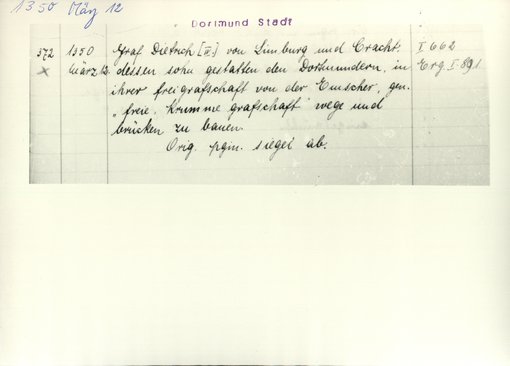 1350 März 12
Dortmund Stadt
572 1350 Graf Dietrich [III.] von Limburg und Cracht. I 662
× März 12. dessen sohn gestatten den Dortmundern, in Erg. I 891
ihrer freigrafschaft von der Emscher, gen.
„freie, Krumme grafschaft" wege und
brücken zu bauen.
Orig. pgm. siegel ab.